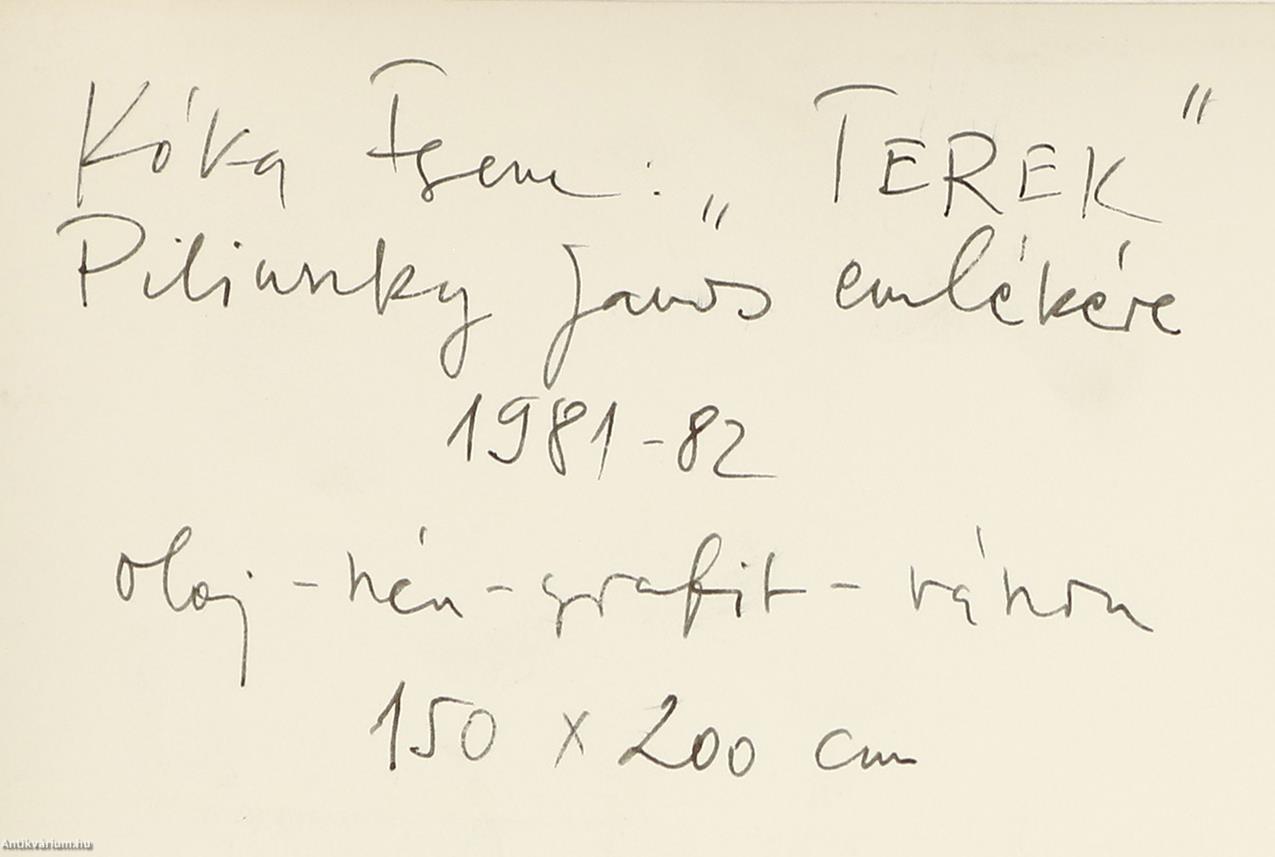 Kóka Ferenc: „TEREK”
Pilinszky János emlékére
1981-82
olaj - szén - grafit - vászon
150 x 200 cm
Antikvárium.hu